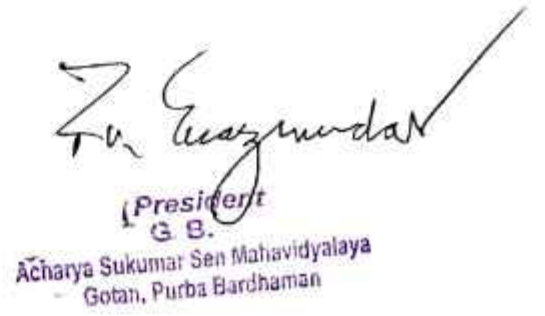 President
G. B.
Acharya Sukumar Sen Mahavidyalaya
Gotan, Purba Bardhaman